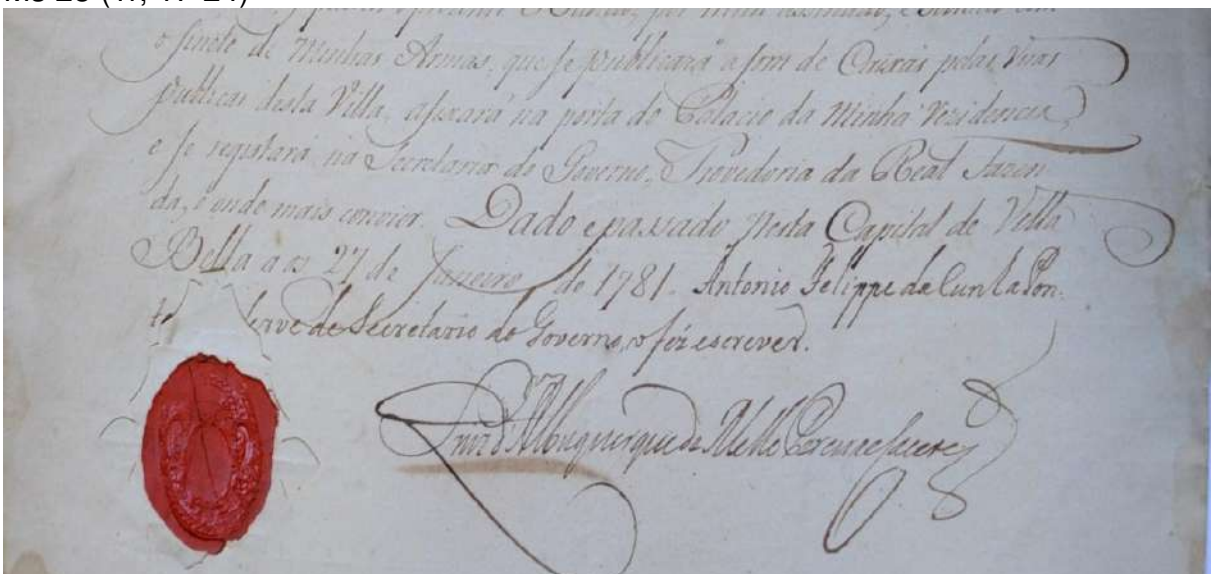 o sinete de Minhas Armas, que se publicará a som de Caixas pelas Ruas
publicas desta Villa, afixará na porta do Palacio da Minha Rezidencia,
e se registará na Secretaria do Governo, Provedoria da Real Fazen
da, e onde mais convier. Dado e passado Nesta Capital de Villa
Bella aos 27 de Janeiro de 1781. Antonio Felippe da Cunha Pon-
te serve de Secretario do Governo, o fez escrever.
Luiz d'Albuquerque de Mello Pereira e Caceres